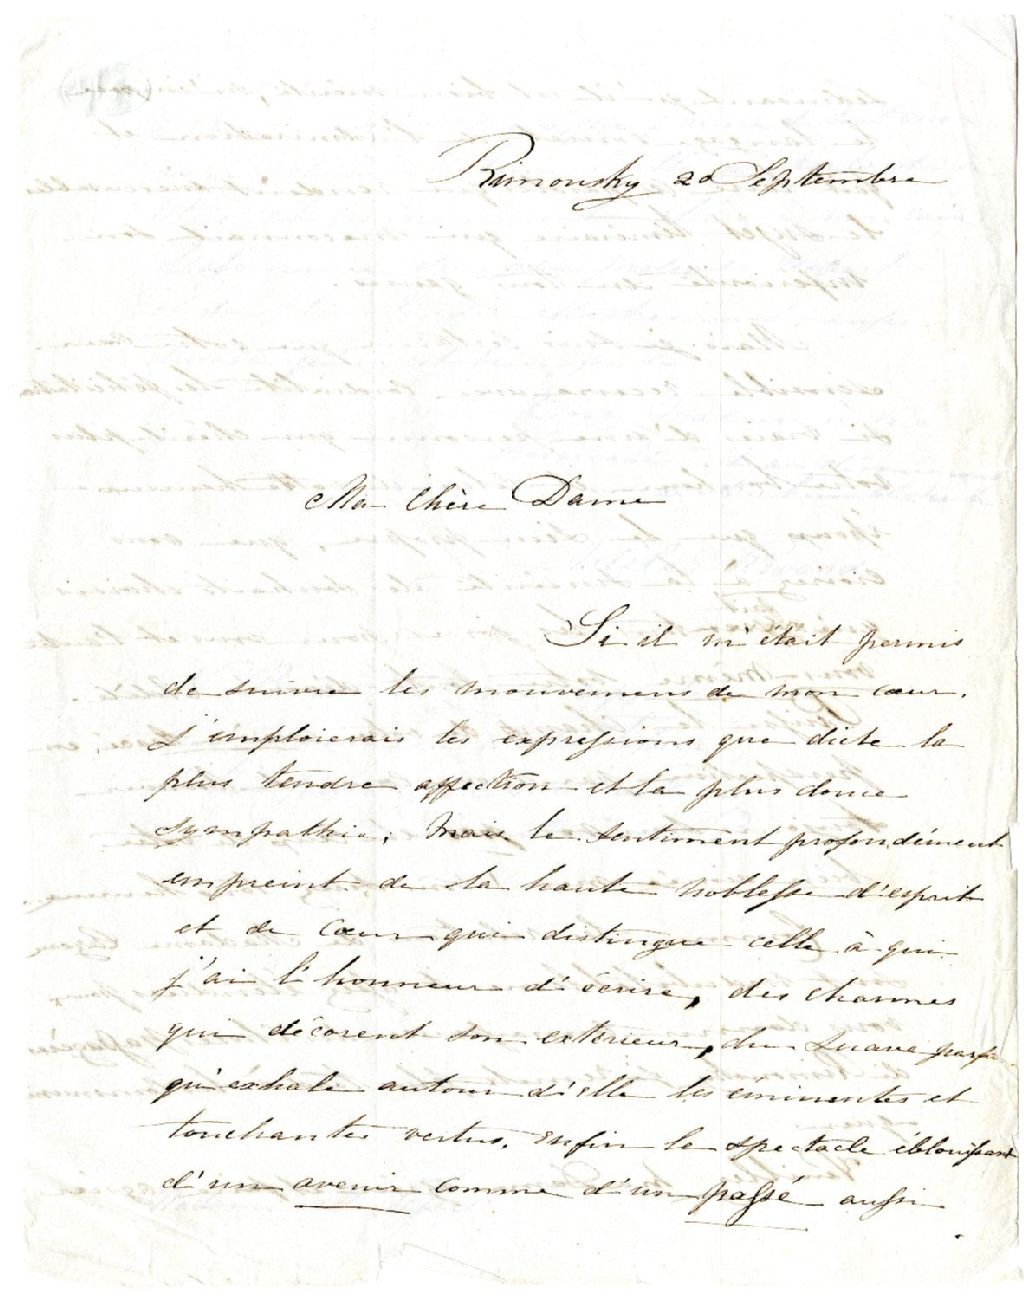 Rimousky 20 Septembre
Ma Chère Dame
Si il m'était permis
de suivre les mouvemens de mon cœur,
j'emploierais les expressions que dicte la
plus tendre affection et la plus douce
sympathie; mais le sentiment profondément
empreint de la haute noblesse d'esprit
et de Cœur qui distingue celle à qui
j'ai l'honneur d'écrire, des charmes
qui décorent son extérieur, du suave parfu
qu'exhale autour d'elle les éminentes et
touchantes vertus, enfin le spectacle éblouissant
d'un avenir comme d'un passé aussi